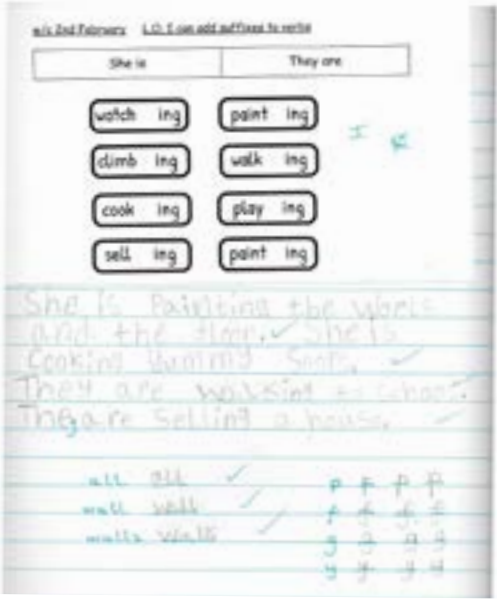 w/c 2nd February L.O. I can add suffixes to verbs
She is They are
watch ing paint ing
climb ing walk ing
cook ing play ing
sell ing paint ing
She is Painting the
and the floor. She is
Cooking yummy
They are walking to school.
They are selling a house.
all all
wall wall
walls walls
p p p p
f f f f
g g g g
y y y y